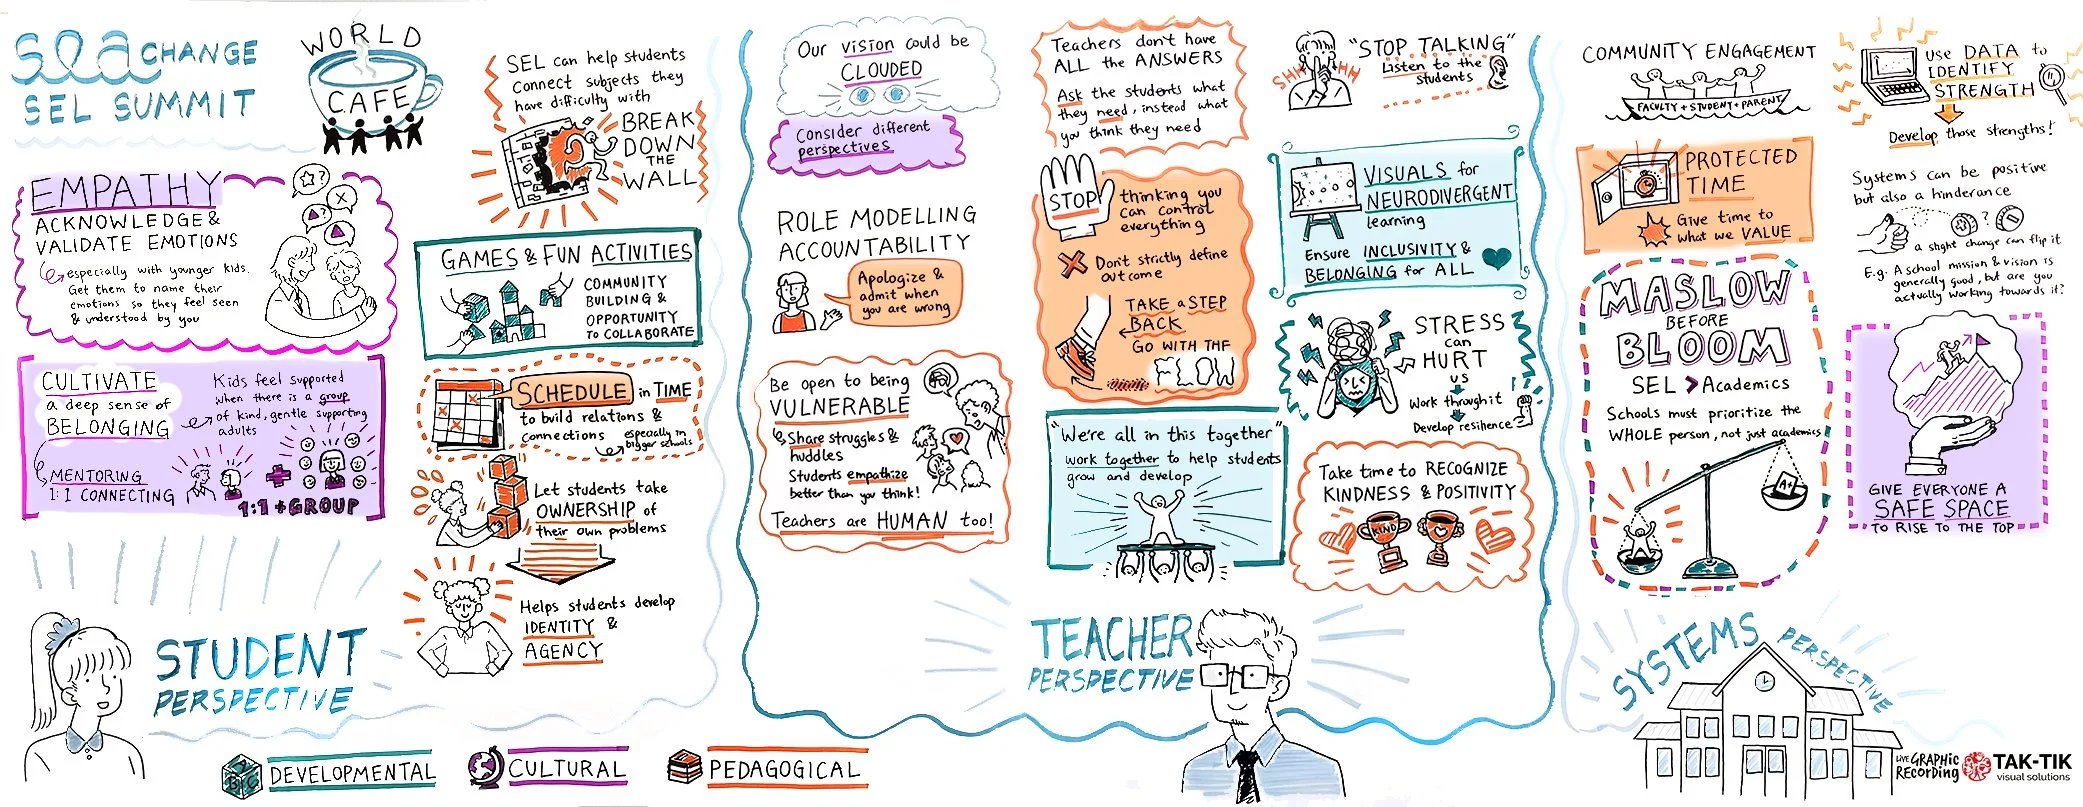 sea CHANGE
SEL SUMMIT
WORLD
CAFE
EMPATHY
ACKNOWLEDGE &
VALIDATE EMOTIONS
especially with younger kids.
Get them to name their
emotions so they feel seen
& understood by you
?
x
?
CULTIVATE
a deep sense of
BELONGING
Kids feel supported
when there is a group
of kind, gentle supporting
adults
MENTORING
1:1 CONNECTING
+
1:1 + GROUP
SEL can help students
connect subjects they
have difficulty with
BREAK
DOWN
THE
WALL
GAMES & FUN ACTIVITIES
COMMUNITY
BUILDING &
OPPORTUNITY
TO COLLABORATE
SCHEDULE in TIME
to build relations &
connections
especially in
bigger schools
Let students take
OWNERSHIP of
their own problems
Helps students develop
IDENTITY &
AGENCY
STUDENT
PERSPECTIVE
Our vision could be
CLOUDED
Consider different
perspectives
ROLE MODELLING
ACCOUNTABILITY
Apologize &
admit when
you are wrong
Be open to being
VULNERABLE
Share struggles &
huddles
Students empathize
better than you think!
Teachers are HUMAN too!
Teachers don't have
ALL the ANSWERS
Ask the students what
they need, instead what
you think they need
STOP
thinking you
can control
everything
Don't strictly define
outcome
TAKE a STEP
BACK
GO WITH THE
FLOW
"We're all in this together"
work together to help students
grow and develop
SHH HH
"STOP TALKING"
Listen to the
students
VISUALS for
NEURODIVERGENT
learning
Ensure INCLUSIVITY &
BELONGING for ALL
STRESS
can
HURT
us
Work through it
Develop resilience
Take time to RECOGNIZE
KINDNESS & POSITIVITY
KIND
TEACHER
PERSPECTIVE
COMMUNITY ENGAGEMENT
FACULTY + STUDENT + PARENT
PROTECTED
TIME
Give time to
what we VALUE
MASLOW
BEFORE
BLOOM
SEL > Academics
Schools must prioritize the
WHOLE person, not just academics
A+
USE DATA to
IDENTIFY
STRENGTH
Develop those strengths!
Systems can be positive
but also a hinderance
?
a slight change can flip it
E.g. A school mission & vision is
generally good, but are you
actually working towards it?
GIVE EVERYONE A
SAFE SPACE
TO RISE TO THE TOP
SYSTEMS PERSPECTIVE
A B C
DEVELOPMENTAL
CULTURAL
PEDAGOGICAL
LIVE GRAPHIC
RECORDING
TAK-TIK
visual solutions